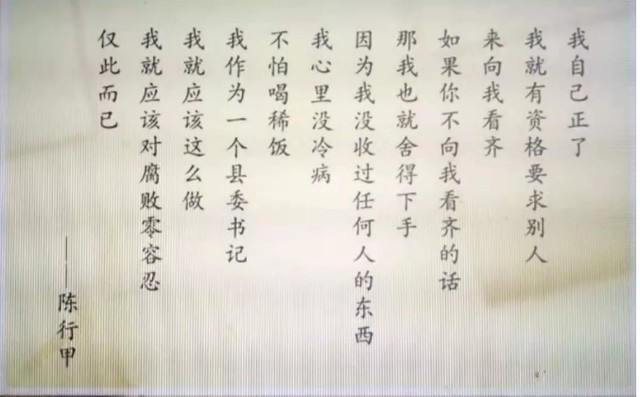 我自己正了
我就有资格要求别人
来向我看齐
如果你不向我看齐的话
那我也就舍得下手
因为我没收过任何人的东西
我心里没冷病
不怕喝稀饭
我作为一个县委书记
我就应该这么做
我就应该对腐败零容忍
仅此而已
——陈行甲